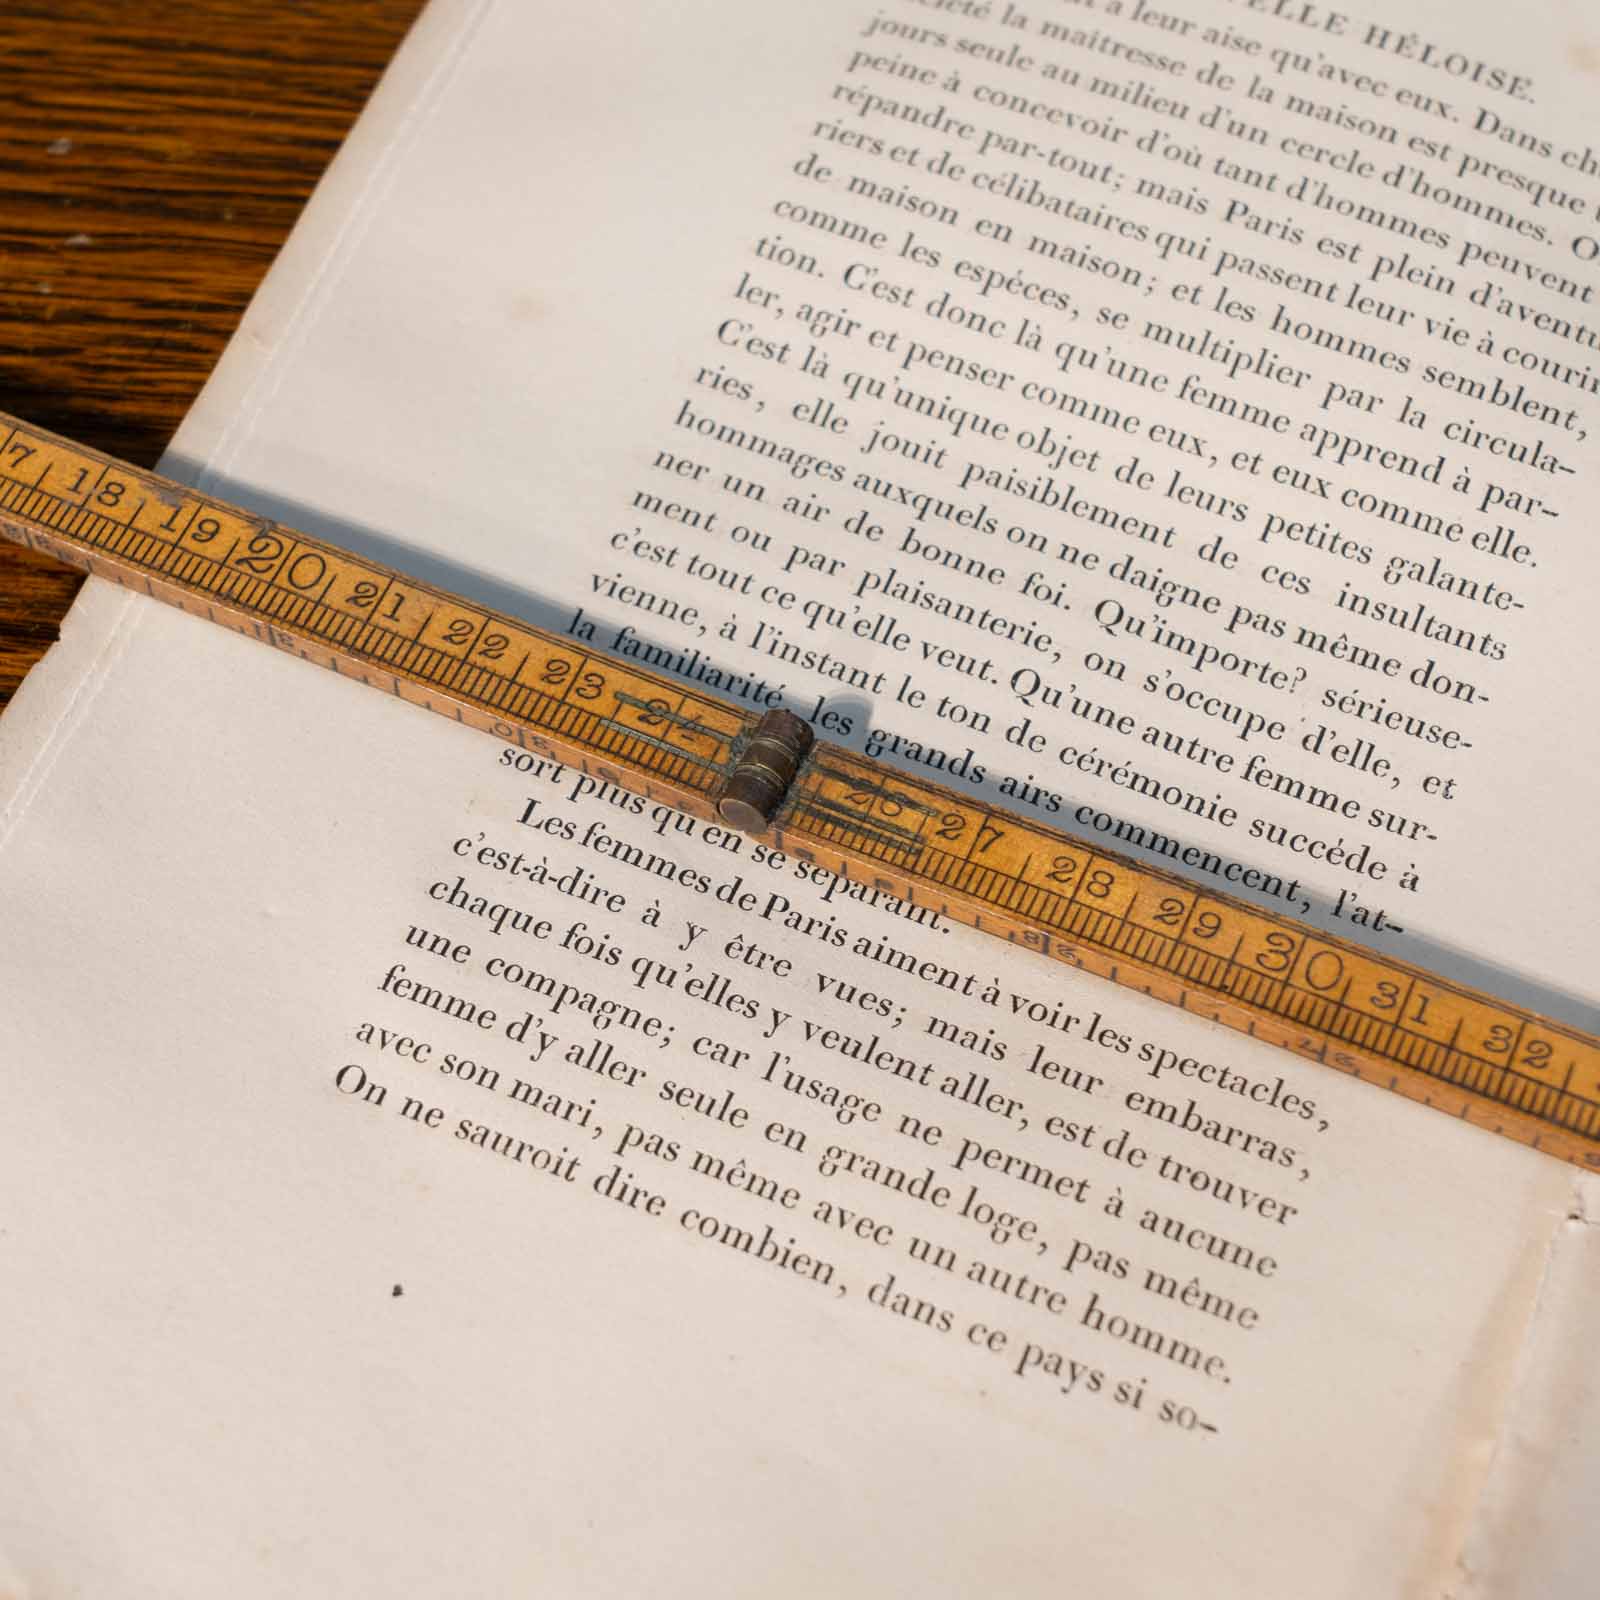 ELLE HÉLOISE.
a leur aise qu'avec eux. Dans
la maitresse de la maison est presque
jours seule au milieu d'un cercle d'hommes.
peine à concevoir d'où tant d'hommes peuvent
répandre par-tout; mais Paris est plein d'aventu
riers et de célibataires qui passent leur vie à courir
de maison en maison; et les hommes semblent,
comme les espéces, se multiplier par la circula-
tion. C'est donc là qu'une femme apprend à par-
ler, agir et penser comme eux, et eux comme elle.
C'est là qu'unique objet de leurs petites galante-
ries, elle jouit paisiblement de ces insultants
hommages auxquels on ne daigne pas même don-
ner un air de bonne foi. Qu'importe? sérieuse-
ment ou par plaisanterie, on s'occupe d'elle, et
c'est tout ce qu'elle veut. Qu'une autre femme sur-
vienne, à l'instant le ton de cérémonie succéde à
la familiarité, les grands airs commencent, l'at-
7 18 19 20 21 22 23 24 26 27 28 29 30 31 32
sort plus qu'en se séparant.
Les femmes de Paris aiment à voir les spectacles,
c'est-à-dire à y être vues; mais leur embarras,
chaque fois qu'elles y veulent aller, est de trouver
une compagne; car l'usage ne permet à aucune
femme d'y aller seule en grande loge, pas même
avec son mari, pas même avec un autre homme.
On ne sauroit dire combien, dans ce pays si so-